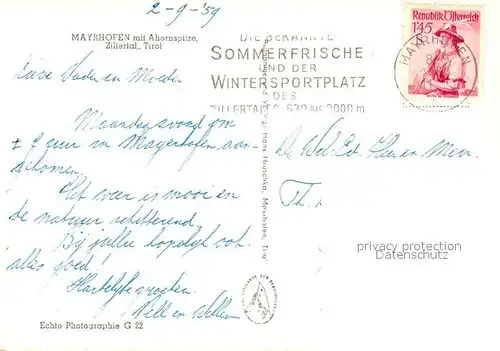 2-9-'59
MAYRHOFEN mit Ahornspitze,
Zillertal, Tirol
DIE BEKANNTE
SOMMERFRISCHE
UND DER
WINTERSPORTPLATZ
DES
ZILLERTALES 630 bis 3000 m
Republik Österreich
1'45
S
MAYRHOFEN
Lieve Vader en Moeder
Maandagavond om
± 8 uur in Mayerhofen aan-
gekomen.
Het weer is mooi en
de natuur schitterend.
Bij jullie hopelijk ook
alles goed!
Hartelijke groeten.
Nell en Willem
De Wel.Ed. Heer en Mevr.
Th.
privacy protection
Datenschutz
Echte Photographie G 22